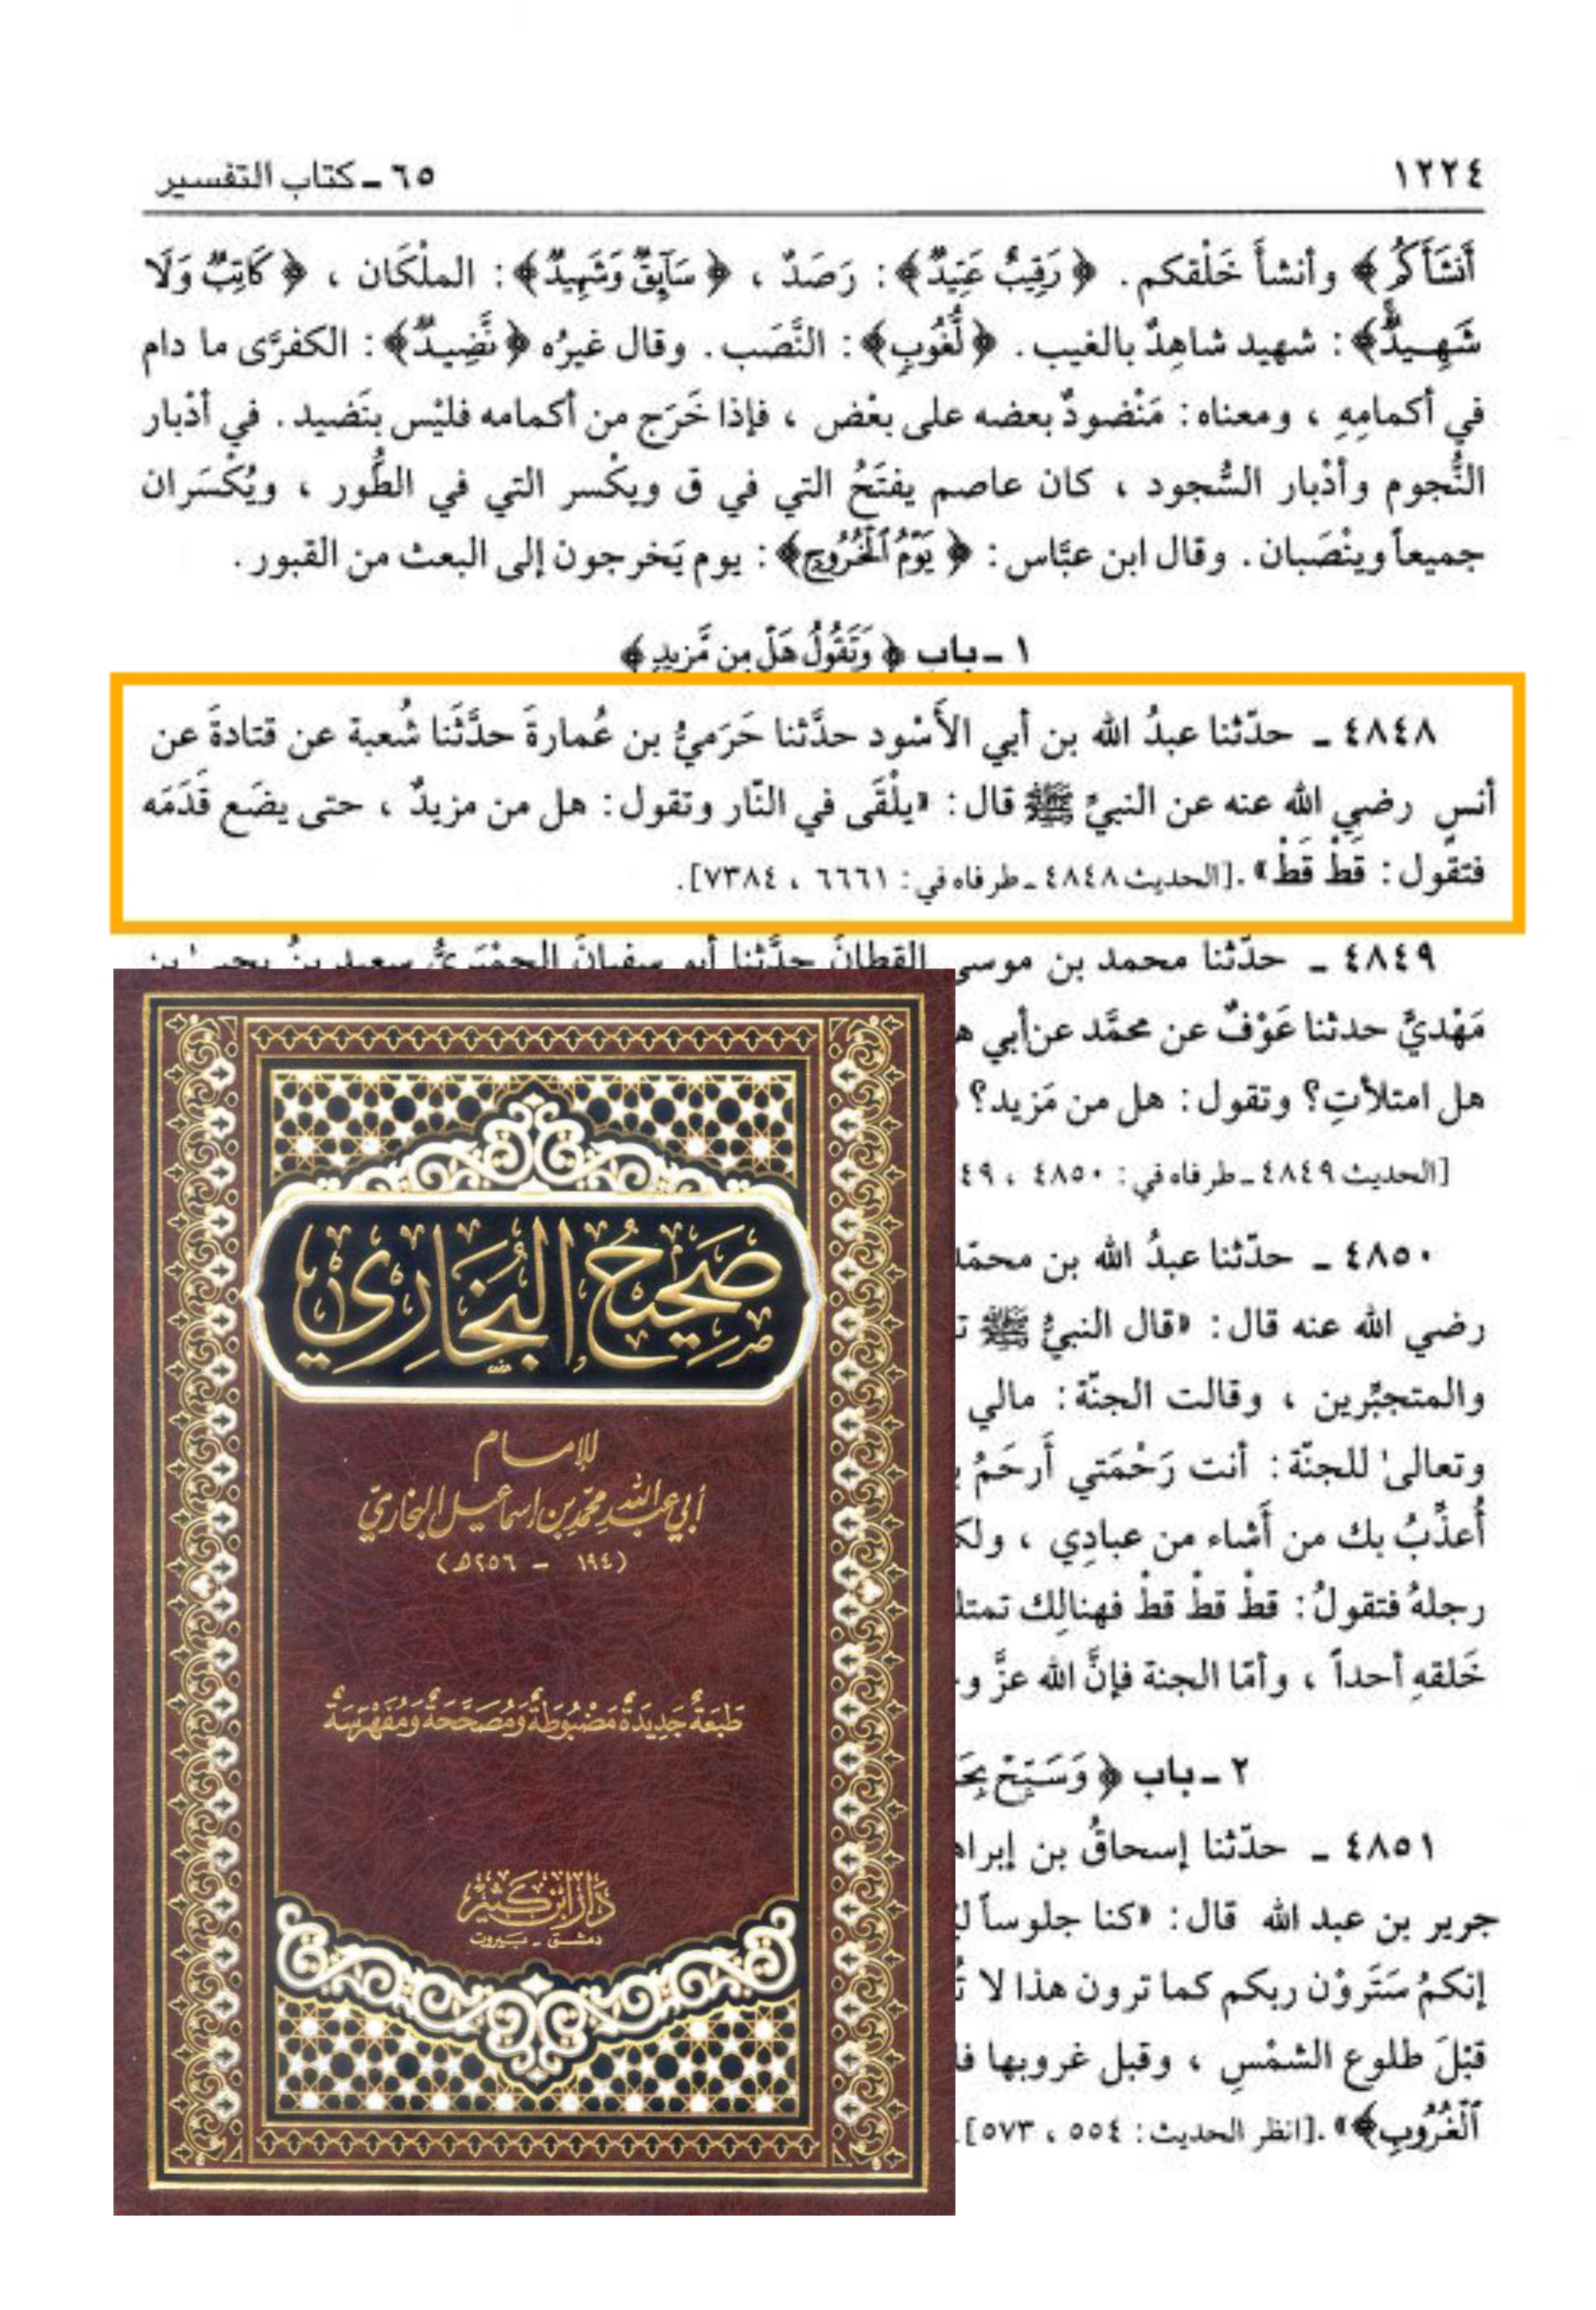 ١٢٢٤
٦٥ ـ كتاب التفسير
أَنشَأَكُمُ﴾ وأنشأَ خَلْقكم. ﴿رَقِيبٌ عَتِيدٌ﴾: رَصَدٌ ، ﴿سَآئِقٌ وَشَهِيدٌ﴾: الملْكَان ، ﴿كَاتِبٌ وَلَا
شَهِيدٌ﴾: شهيد شاهِدٌ بالغيب. ﴿لُّغُوبٍ﴾: النَّصَب. وقال غيرُه ﴿نَّضِيدٌ﴾: الكفرَّى ما دام
في أكمامِهِ ، ومعناه: مَنْضودٌ بعضه على بعْض ، فإذا خَرَج من أكمامه فليْس بنَضيد. في أدْبار
النُّجوم وأدْبار السُّجود ، كان عاصم يفتَحُ التي في ق ويكْسر التي في الطُّور ، ويُكْسَران
جميعاً وينْصَبان. وقال ابن عبَّاس: ﴿يَوْمُ ٱلْخُرُوجِ﴾: يوم يَخرجون إلى البعث من القبور.
١ ـ باب ﴿وَتَقُولُ هَلْ مِن مَّزِيدٍ﴾
٤٨٤٨ ـ حدّثنا عبدُ الله بن أبي الأَسْود حدَّثنا حَرَميُّ بن عُمارةَ حدَّثَنا شُعبة عن قتادةَ عن
أنسٍ رضي الله عنه عن النبيِّ ﷺ قال: «يلْقَى في النّار وتقول: هل من مزيدٌ ، حتى يضَع قَدَمَه
فتقول: قَطْ قَطْ». [الحديث ٤٨٤٨ ـ طرفاه في: ٦٦٦١ ، ٧٣٨٤].
٤٨٤٩ ـ حدّثنا محمد بن موسى القطانُ حدَّثنا أبو سفيانَ الحِمْيَريُّ سعيد بنُ يحيىٰ بن
مَهْديٍّ حدثنا عَوْفٌ عن محمَّد عن أبي
هل امتلأتِ؟ وتقول: هل من مَزيد؟
[الحديث ٤٨٤٩ ـ طرفاه في: ٤٨٥٠ ،
٤٨٥٠ ـ حدّثنا عبدُ الله بن
رضي الله عنه قال: «قال النبيُّ ﷺ
والمتجبِّرين ، وقالت الجنّة: مالي
وتعالىٰ للجنّة: أنت رَحْمَتي أَرحَمُ
أُعذِّبُ بك من أَشاء من عبادِي ،
رجلهُ فتقولُ: قطْ قطْ قطْ فهنالِك
خَلقهِ أحداً ، وأمّا الجنة فإنَّ الله عزَّ
٢ ـ باب ﴿وَسَبِّحْ
٤٨٥١ ـ حدّثنا إسحاقُ بن
جرير بن عبد الله قال: «كنا جلوساً
إنكمُ سَتَروْن ربكم كما ترون هذا لا
قبْلَ طلوع الشمْسِ ، وقبل غروبها
ٱلْغُرُوبِ﴾». [انظر الحديث: ٥٥٤ ، ٥٧٣].
صَحِيحُ البُخَارِيّ
للإمام
أبي عبد الله محمّد بن إسماعيل البخاريّ
(١٩٤ – ٢٥٦هـ)
طَبْعَةٌ جَدِيدَةٌ مَضْبُوطَةٌ وَمُصَحَّحَةٌ وَمُفَهْرَسَةٌ
دار ابن كثير
دمشق ـ بيروت